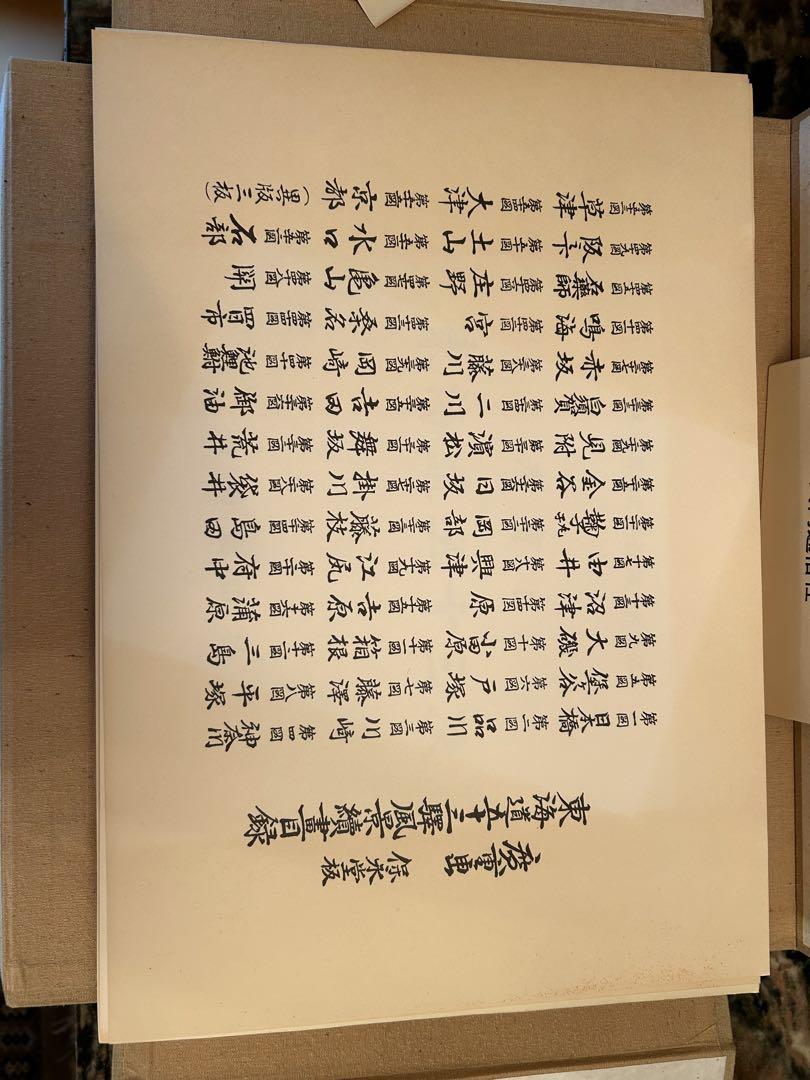 廣重画 保永堂板
東海道五十三驛風景續畫目録
第一圖 日本橋 第二圖 品川 第三圖 川崎 第四圖 神奈川
第五圖 堡ヶ谷 第六圖 戸塚 第七圖 藤澤 第八圖 平塚
第九圖 大磯 第十圖 小田原 第十一圖 箱根 第十二圖 三島
第十三圖 沼津 第十四圖 原 第十五圖 吉原 第十六圖 蒲原
第十七圖 由井 第十八圖 興津 第十九圖 江尻 第二十圖 府中
第二十一圖 鞠子 第二十二圖 岡部 第二十三圖 藤枝 第二十四圖 島田
第二十五圖 金谷 第二十六圖 日坂 第二十七圖 掛川 第二十八圖 袋井
第二十九圖 見附 第三十圖 濱松 第三十一圖 舞坂 第三十二圖 荒井
第三十三圖 白須賀 第三十四圖 二川 第三十五圖 吉田 第三十六圖 御油
第三十七圖 赤坂 第三十八圖 藤川 第三十九圖 岡崎 第四十圖 池鯉鮒
第四十一圖 鳴海 第四十二圖 宮 第四十三圖 桑名 第四十四圖 四日市
第四十五圖 石藥師 第四十六圖 庄野 第四十七圖 亀山 第四十八圖 関
第四十九圖 阪下 第五十圖 土山 第五十一圖 水口 第五十二圖 石部
第五十三圖 草津 第五十四圖 大津 第五十五圖 京都 （異版三板）